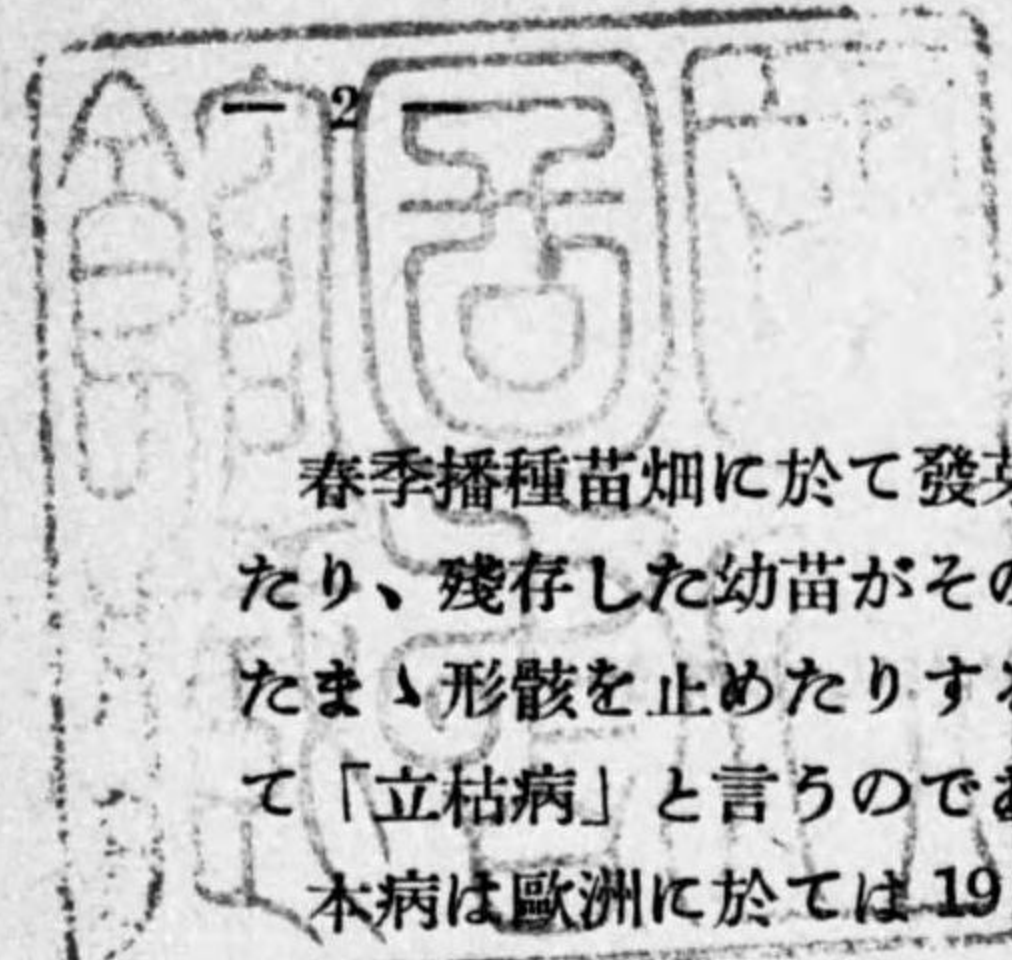 — 2 —
春季播種苗畑に於て發芽
たり、殘存した幼苗がその
たまゝ形骸を止めたりする
て「立枯病」と言うのであ
本病は歐洲に於ては 19